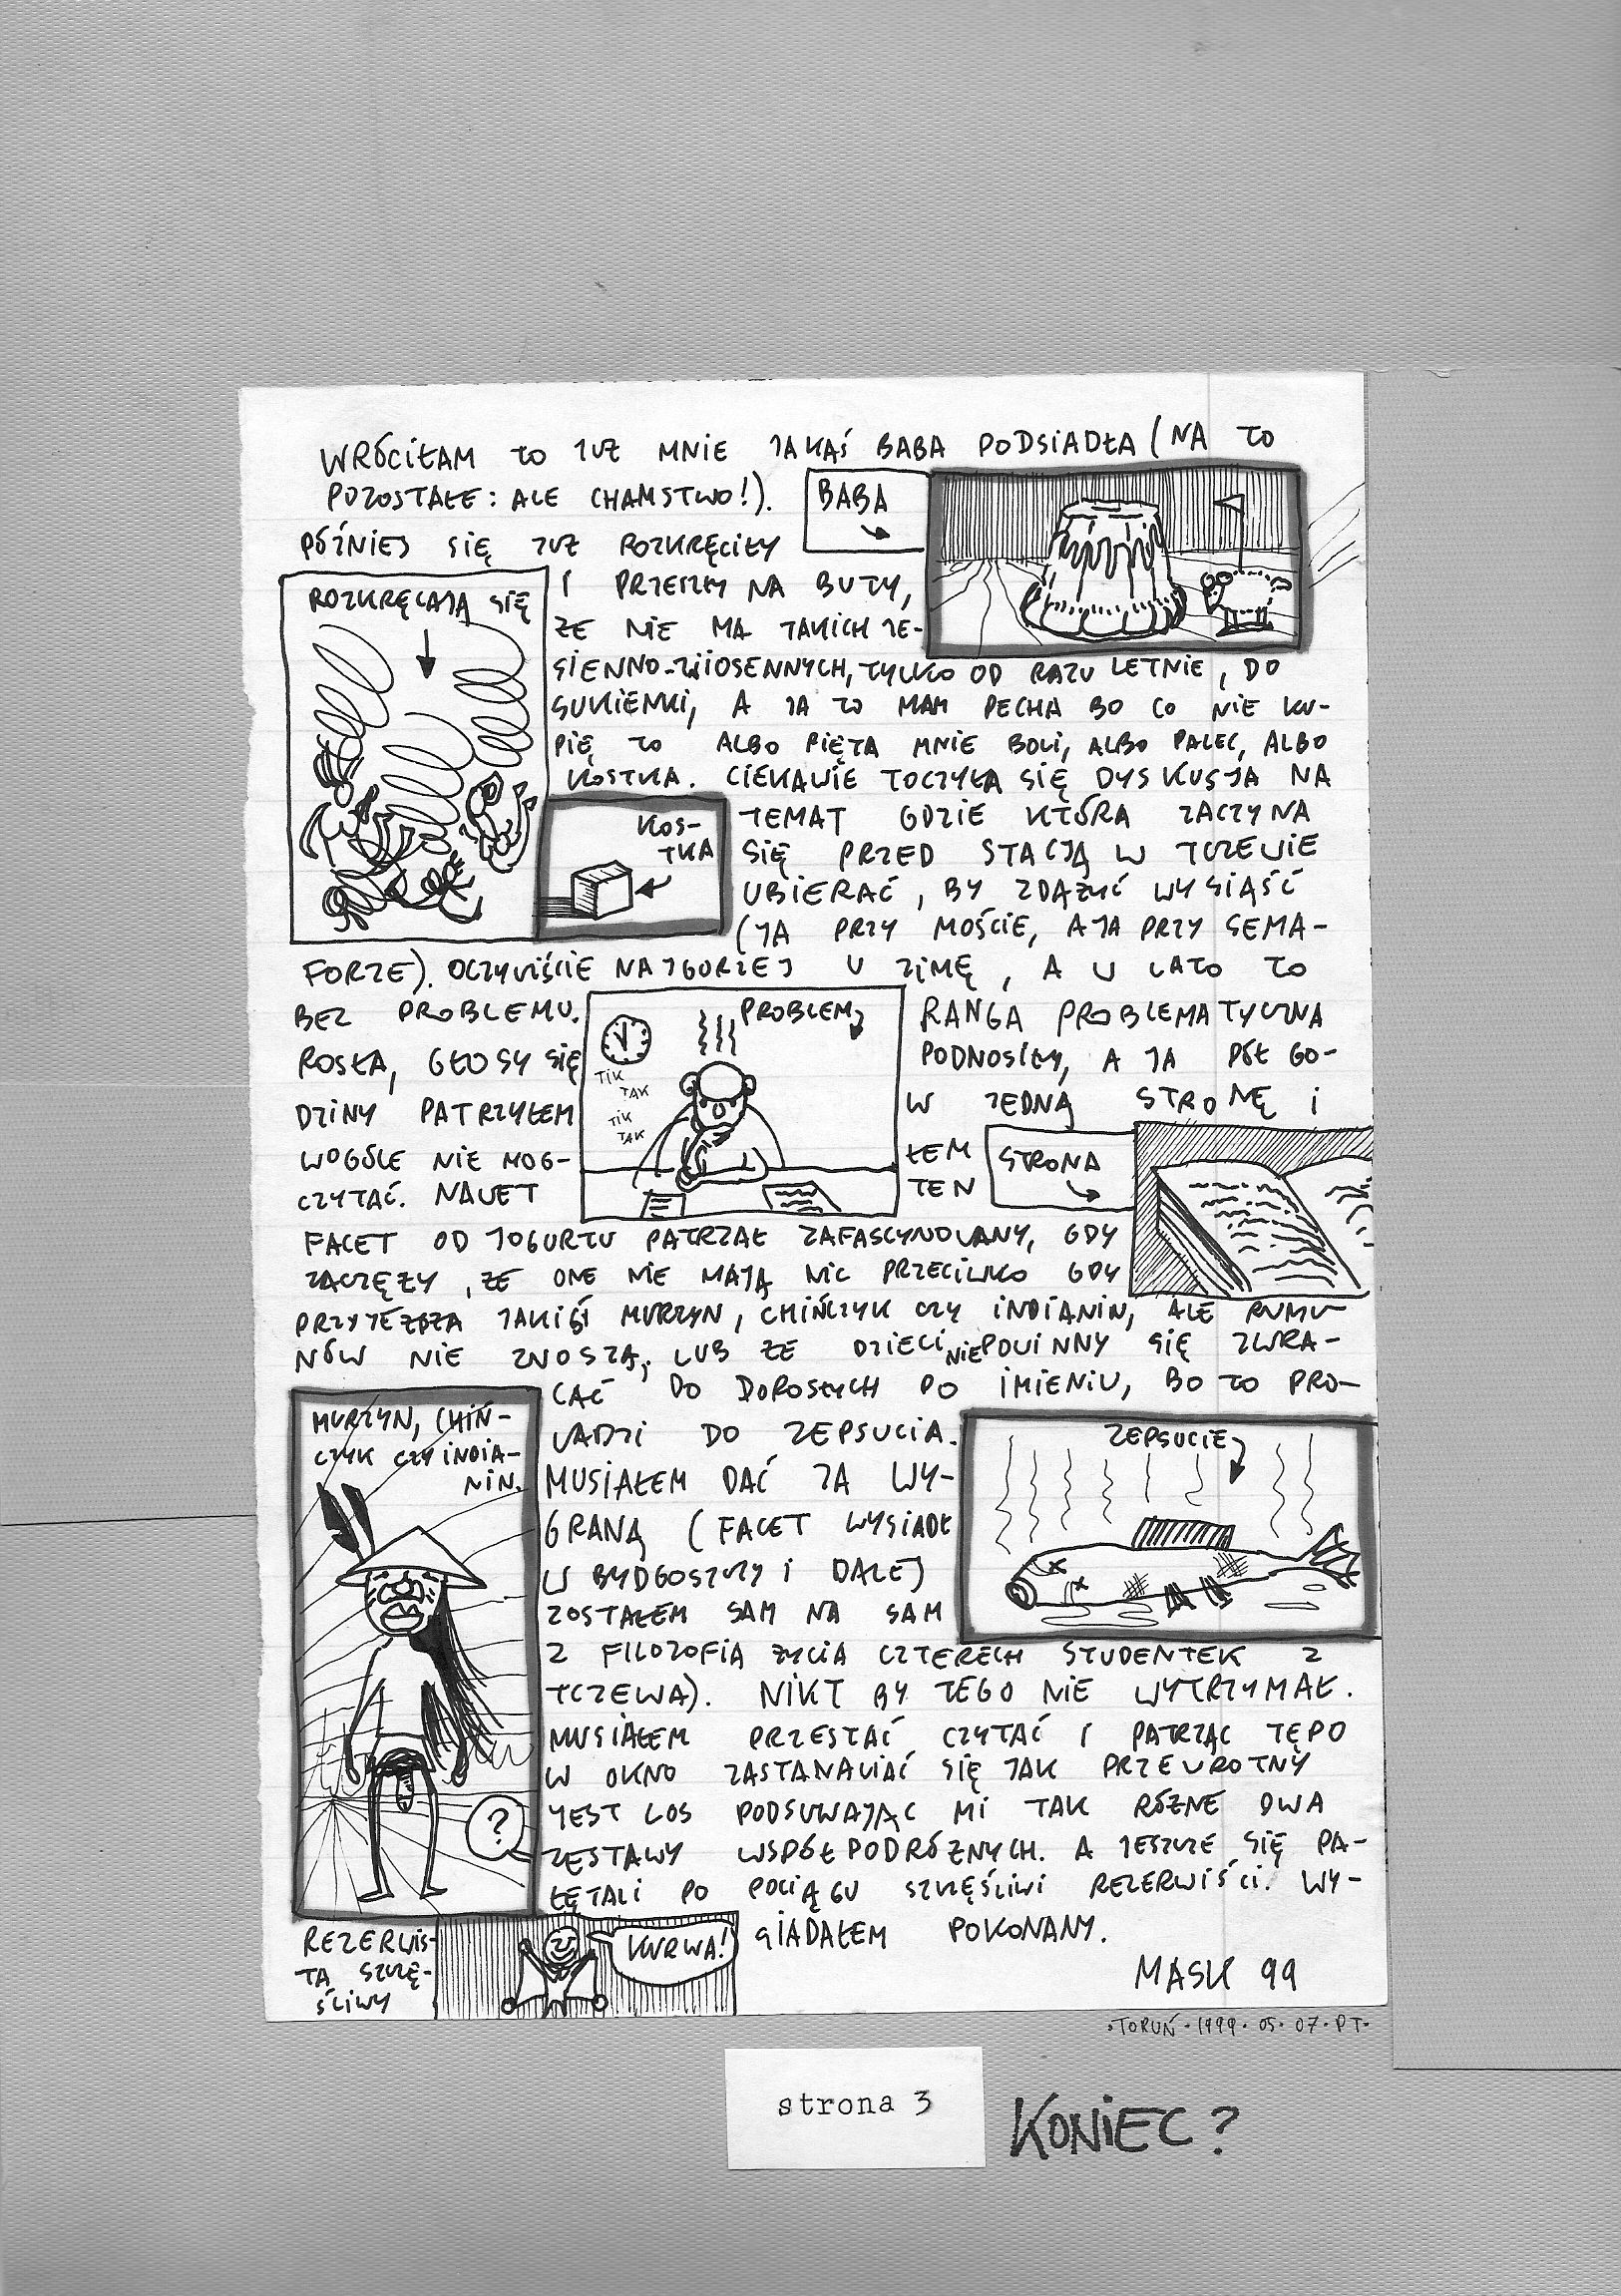 WRÓCIŁAM TO JUŻ MNIE JAKAŚ BABA PODSIADŁA (NA TO
POZOSTAŁE: ALE CHAMSTWO!).
BABA
PÓŹNIEJ SIĘ JUŻ ROZKRĘCIŁY
ROZKRĘCAJĄ SIĘ
I PRZESZŁY NA BUTY,
ŻE NIE MA TAKICH JE-
SIENNO-WIOSENNYCH, TYLKO OD RAZU LETNIE, DO
SUKIENKI, A JA TO MAM PECHA BO CO NIE KU-
PIĘ TO ALBO PIĘTA MNIE BOLI, ALBO PALEC, ALBO
KOSTKA. CIEKAWIE TOCZYŁA SIĘ DYSKUSJA NA
KOS-
TKA
TEMAT GDZIE KTÓRA ZACZYNA
SIĘ PRZED STACJĄ W TCZEWIE
UBIERAĆ, BY ZDĄŻYĆ WYSIĄŚĆ
(JA PRZY MOŚCIE, A JA PRZY SEMA-
FORZE). OCZYWIŚCIE NAJGORZEJ W ZIMĘ, A W LATO TO
BEZ PROBLEMU. RANGA PROBLEMATYCZNA
PROBLEM
TIK
TAK
TIK
TAK
ROSŁA, GŁOSY SIĘ PODNOSIŁY, A JA PÓŁ GO-
DZINY PATRZYŁEM W JEDNĄ STRONĘ I
WOGÓLE NIE MOG- ŁEM
STRONA
CZYTAĆ. NAWET TEN
FACET OD JOGURTU PATRZAŁ ZAFASCYNOWANY, GDY
ZACZĘŻY, ŻE ONE NIE MAJĄ NIC PRZECIWKO GDY
PRZYJEŻDZA JAKIŚ MURZYN, CHIŃCZYK CZY INDIANIN, ALE RUMU-
NÓW NIE ZNOSZĄ, LUB ŻE DZIECI NIEPOWINNY SIĘ ZWRA-
CAĆ DO DOROSŁYCH PO IMIENIU, BO TO PRO-
MURZYN, CHIŃ-
CZYK CZY INDIA-
NIN.
?
WADZI DO ZEPSUCIA.
ZEPSUCIE
MUSIAŁEM DAĆ ZA WY-
GRANĄ (FACET WYSIADŁ
W BYDGOSZCZY I DALEJ
ZOSTAŁEM SAM NA SAM
Z FILOZOFIĄ ŻYCIA CZTERECH STUDENTEK Z
TCZEWA). NIKT BY TEGO NIE WYTRZYMAŁ.
MUSIAŁEM PRZESTAĆ CZYTAĆ I PATRZĄC TĘPO
W OKNO ZASTANAWIAĆ SIĘ JAK PRZEWROTNY
JEST LOS PODSUWAJĄC MI TAK RÓŻNE DWA
ZESTAWY WSPÓŁPODRÓŻNYCH. A JESZCZE SIĘ PA-
ŁĘTALI PO POCIĄGU SZCZĘŚLIWI REZERWIŚCI. WY-
SIADAŁEM POKONANY.
REZERWIS-
TA SZCZĘ-
ŚLIWY
KURWA!
MASK 99
·TORUŃ·1999·05·07·PT·
strona 3
KONIEC?